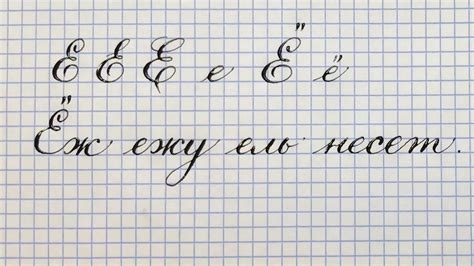 Е Е Е е Ё ё
Ёж ежу ель несет.